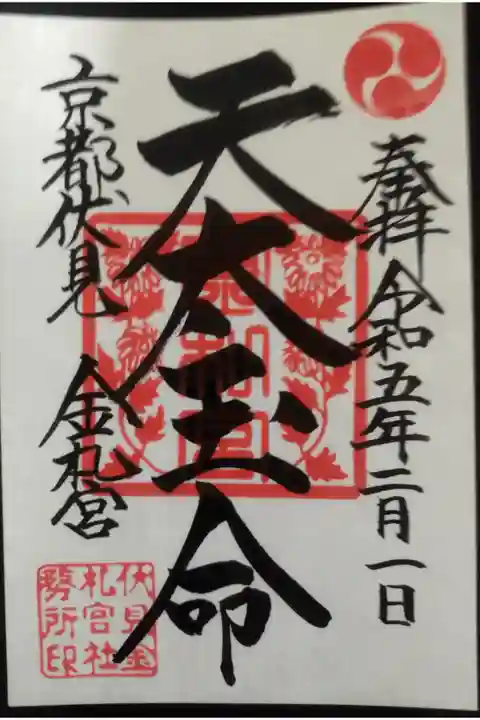 奉拝 令和五年二月一日
天太玉命
京都伏見 金札宮
金札宮
伏見金
札宮社
務所印